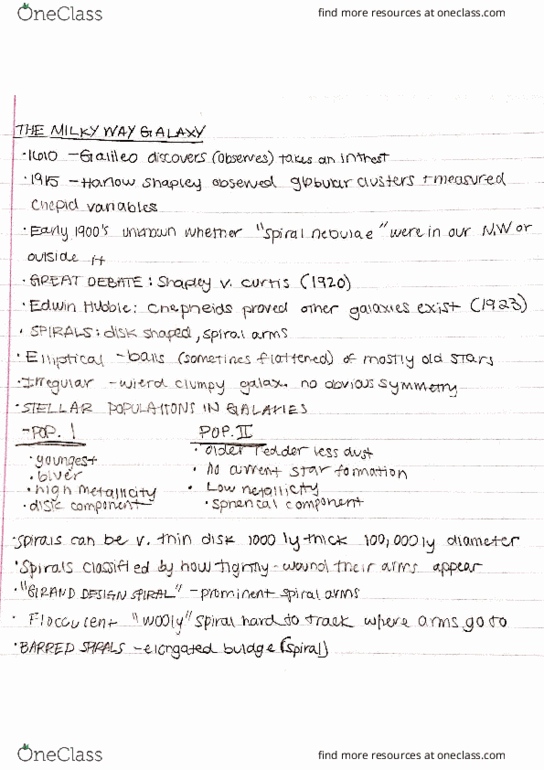 OneClass find more resources at oneclass.com
THE MILKY WAY GALAXY
·1610 - Galileo discovers (observes) takes an intrest
·1915 - Harlow Shapley observed globular clusters + measured
Chepid variables
·Early 1900's unknown whether "spiral nebulae" were in our M.W or
outside it
·GREAT DEBATE: Shapley v. Curtis (1920)
·Edwin Hubble: Chepheids proved other galaxies exist (1923)
·SPIRALS: disk shaped, spiral arms
·Elliptical - balls (sometimes flattened) of mostly old stars
·Irregular - wierd clumpy galax. no obvious symmetry
·STELLAR POPULATIONS IN GALAXIES
-POP. I POP. II
·youngest ·older redder less dust
·bluer ·No current star formation
·high metallicity ·Low metallicity
·disk component ·spherical component
·Spirals can be v. thin disk 1000 ly thick 100,000 ly diameter
·Spirals classified by how tightly-wound their arms appear
·"GRAND DESIGN SPIRAL" - prominent spiral arms
·Flocculent "wooly" spiral hard to track where arms go to
·BARRED SPIRALS - elongated buldge (spiral)
OneClass find more resources at oneclass.com